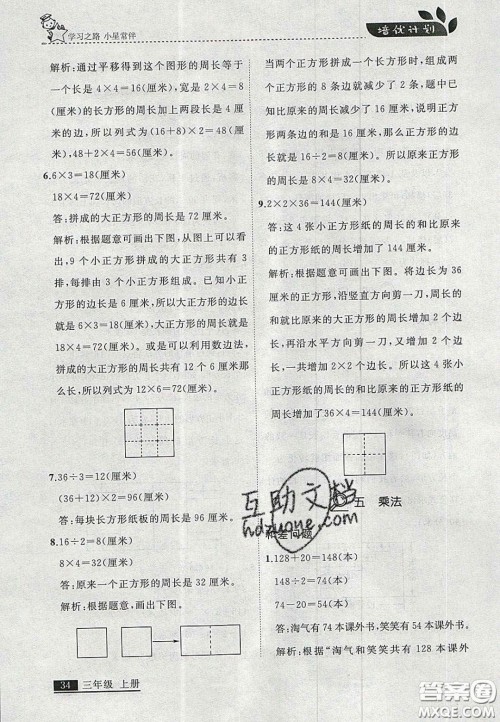 学习之路 小星常伴
培优计划
解析:通过平移得到这个图形的周长等于
一个长是 4×4=16(厘米),宽是 2×4=8
(厘米)的长方形的周长加上两段长是 4 厘
米的边,所以列式为(16+8)×2=48(厘
米),48+2×4=56(厘米)。
6.6×3=18(厘米)
18×4=72(厘米)
答:拼成的大正方形的周长是 72 厘米。
解析:根据题意可画出下图,从图上可以看
出,9 个小正方形拼成的大正方形共有 3
排,每排由 3 个小正方形组成。已知小正
方形的边长是 6 厘米,所以大正方形的边长
就是 6×3=18(厘米),大正方形的周长是
18×4=72(厘米)。或是可以利用数边法,
拼成的大正方形的周长共有 12 个 6 厘米那
么长,所以列式为 12×6=72(厘米)。
7.36÷3=12(厘米)
(36+12)×2=96(厘米)
答:每块长方形纸板的周长是 96 厘米。
8.16÷2=8(厘米)
8×4=32(厘米)
答:原来一个正方形的周长是 32 厘米。
解析:根据题意,可画出下图。
当两个正方形拼成一个长方形时,组成两
个正方形的 8 条边就减少了 2 条,题中已
知比原来的周长减少了 16 厘米,说明正方
形两条边的和是 16 厘米,那么正方形的边
长就是 16÷2=8(厘米)。所以原来正方形
的周长是 8×4=32(厘米)。
9.2×2×36=144(厘米)
答:这 4 张小正方形纸的周长的和比原来
的正方形的周长增加了 144 厘米。
解析:根据题意可画出下图。将边长为 36
厘米的正方形,沿竖直方向剪一刀,增加
了 2 个正方形边长,也就是增加了 2 个边
长,再沿水平方向剪一刀,又增加 2 个边
长,一共增加 2×2 个边长。所以这 4 张小
正方形纸的周长的和比原来的正方形的
周长增加了 36×4=144(厘米)。
互助文档
hdzuone.com
五 乘法
和差问题
1.128+20=148(本)
148÷2=74(本)
74-20=54(本)
答:淘气有 74 本课外书,笑笑有 54 本课外书。
解析:根据“淘气和笑笑共有 128 本课外
34 三年级 上册
答案圈
MXQE.COM